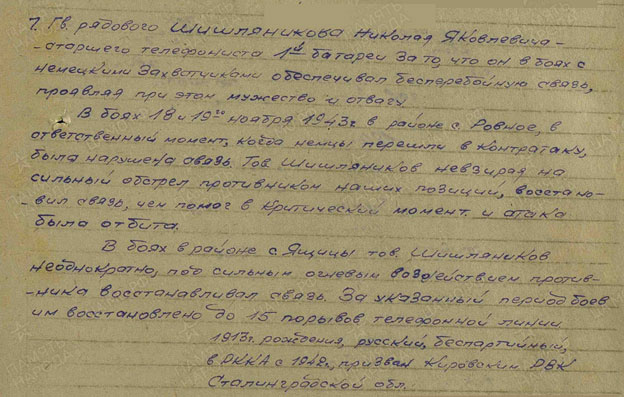 7. Гв. рядового Шишляникова Николая Яковлевича –
- старшего телефониста 1й батареи За то, что он в боях с
немецкими захватчиками обеспечивал бесперебойную связь,
проявляя при этом мужество и отвагу.
В боях 18 и 19го ноября 1943г в районе с. Ровное, в
ответственный момент, когда немцы перешли в контратаку,
была нарушена связь. Тов Шишляников невзирая на
сильный обстрел противником наших позиций, восстано-
- вил связь, чем помог в критический момент и атака
была отбита.
В боях в районе с Ящицы тов. Шишляников
неоднократно, под сильным огневым воздействием против-
- ника восстанавливал связь. За указанный период боев
им восстановлено до 15 порывов телефонной линии
1913г. рождения, русский, беспартийный,
в РККА с 1942г., призван Кировским РВК
Сталинградской обл.